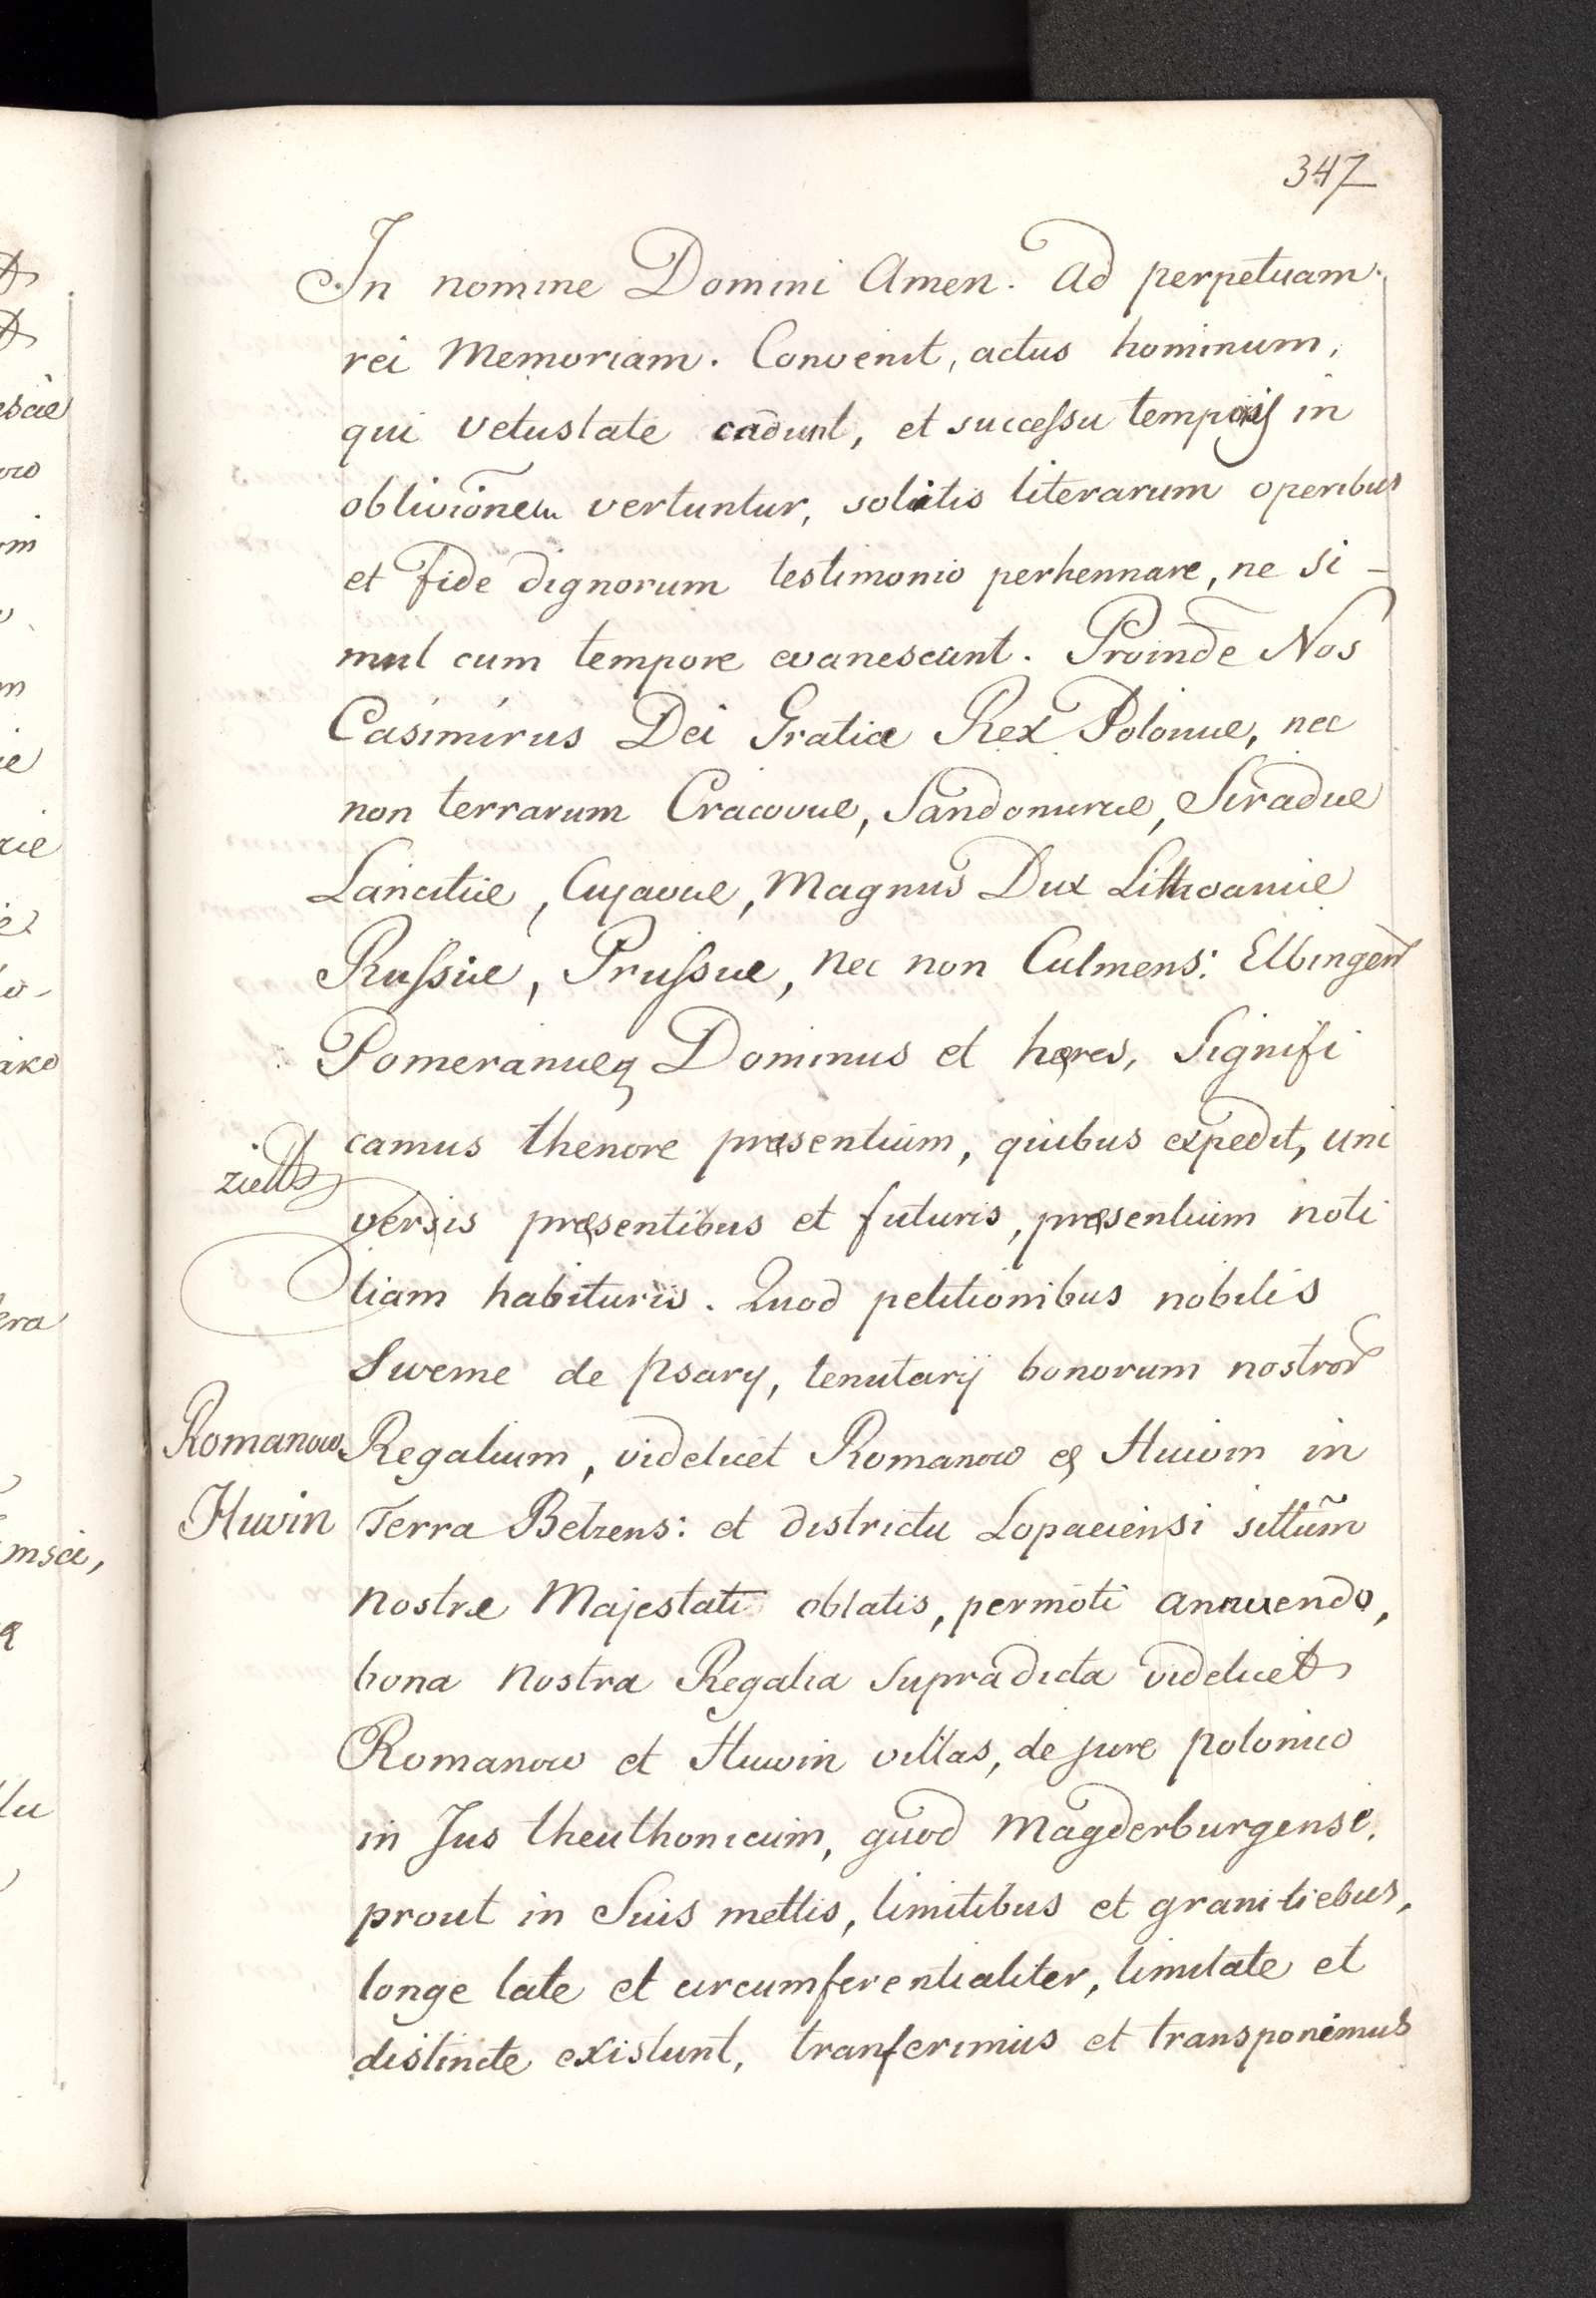 347
In nomine Domini Amen. Ad perpetuam
rei Memoriam. Convenit, actus hominum,
qui vetustate cadunt, et successu temporis in
oblivionem vertuntur, solitis literarum operibus
et fide dignorum testimonio perhennare, ne si-
mul cum tempore evanescant. Proinde Nos
Casimirus Dei Gratia Rex Polonie, nec
non terrarum Cracovie, Sandomirie, Siradie
Lancitie, Cujavie, Magnus Dux Lithvanie
Russie, Prussie, nec non Culmens: Elbingen
Pomeranieq Dominus et hæres, Signifi
camus thenore præsentium, quibus expedit, uni
versis præsentibus et futuris, præsentium noti
tiam habituris. Quod petitionibus nobilis
Sweme de Psary, tenutarij bonorum nostror
Romanow Regalium, videlicet Romanow & Huwin in
Huwin Terra Belzens: et districtu Lopaciensi sittũm
nostre Majestati oblatis, permoti annuendo,
bona nostra Regalia supradicta videlicet
Romanow et Huwin villas, de jure polonico
in Jus theuthonicum, quod Magderburgense,
prout in Suis mettis, limitibus et granitiebus,
longe late et circumferentialiter, limitate et
distincte existunt, tranferimus et transponimus